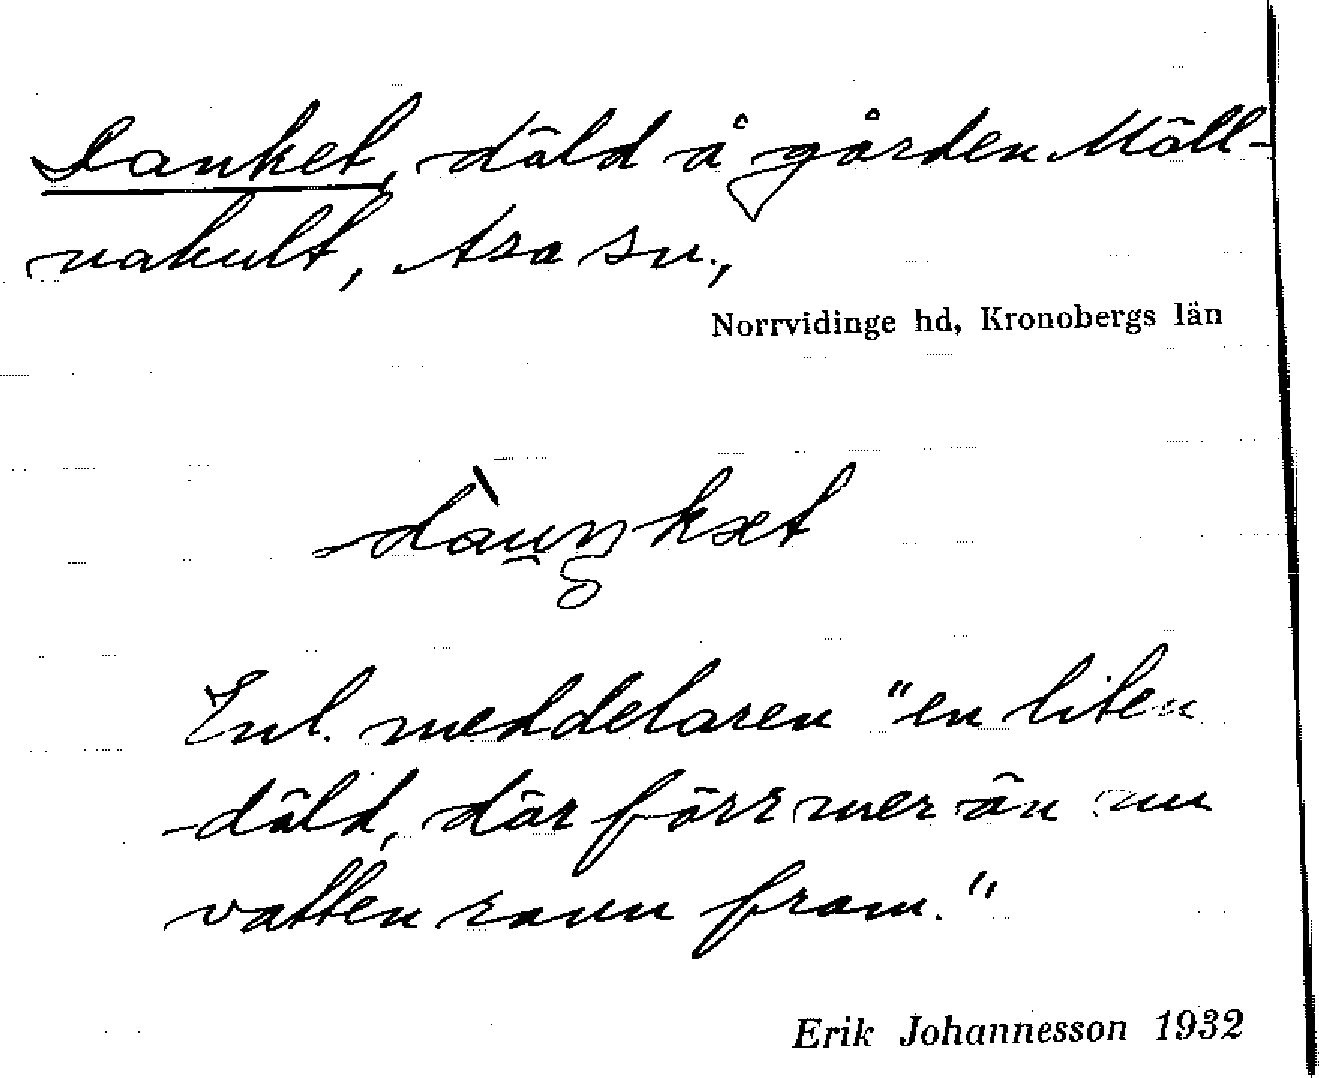 Danket, däld å gården Mäll-
nakult, Asa sn.,
Norrvidinge hd, Kronobergs län
Enl. meddelaren "en liten
däld, där förr mer än nu
vatten rann fram."
Erik Johannesson 1932